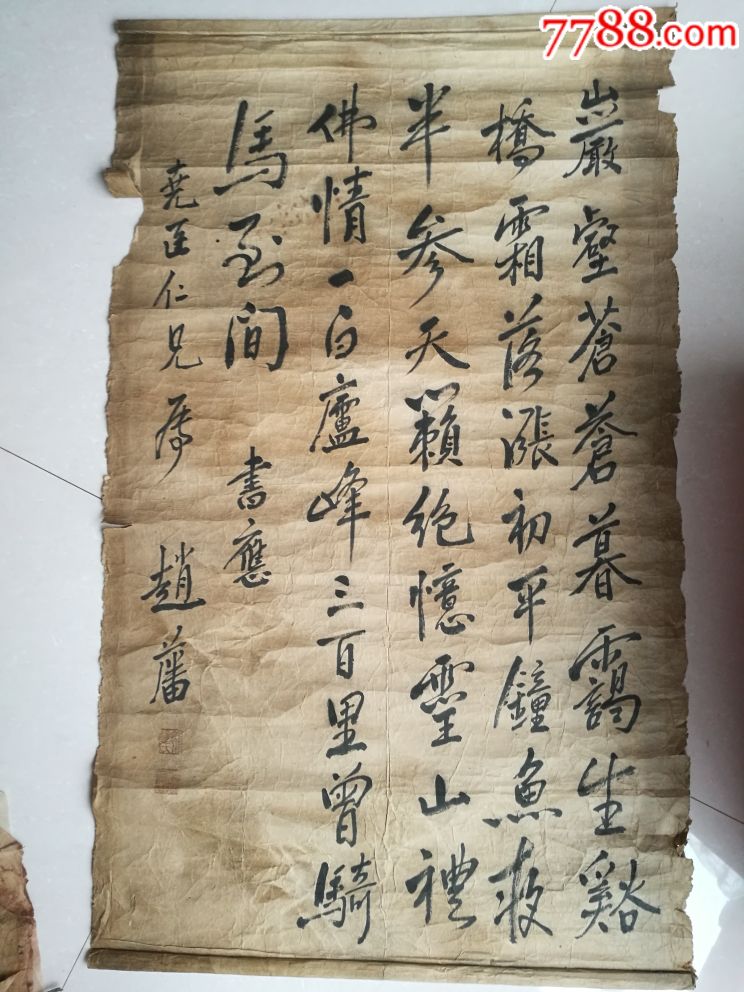 7788.com
巖壑蒼蒼暮靄生谿
橋霜落漲初平鐘魚夜
半參天籟絕憶靈山禮
佛情一白廬峰三百里曾騎
馬到間 書應
堯臣仁兄屬 趙藩